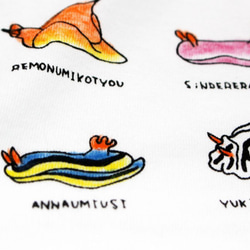 REMONUMIKOTYOU
SiNDERER
ANNAUMIUSI
YUKI